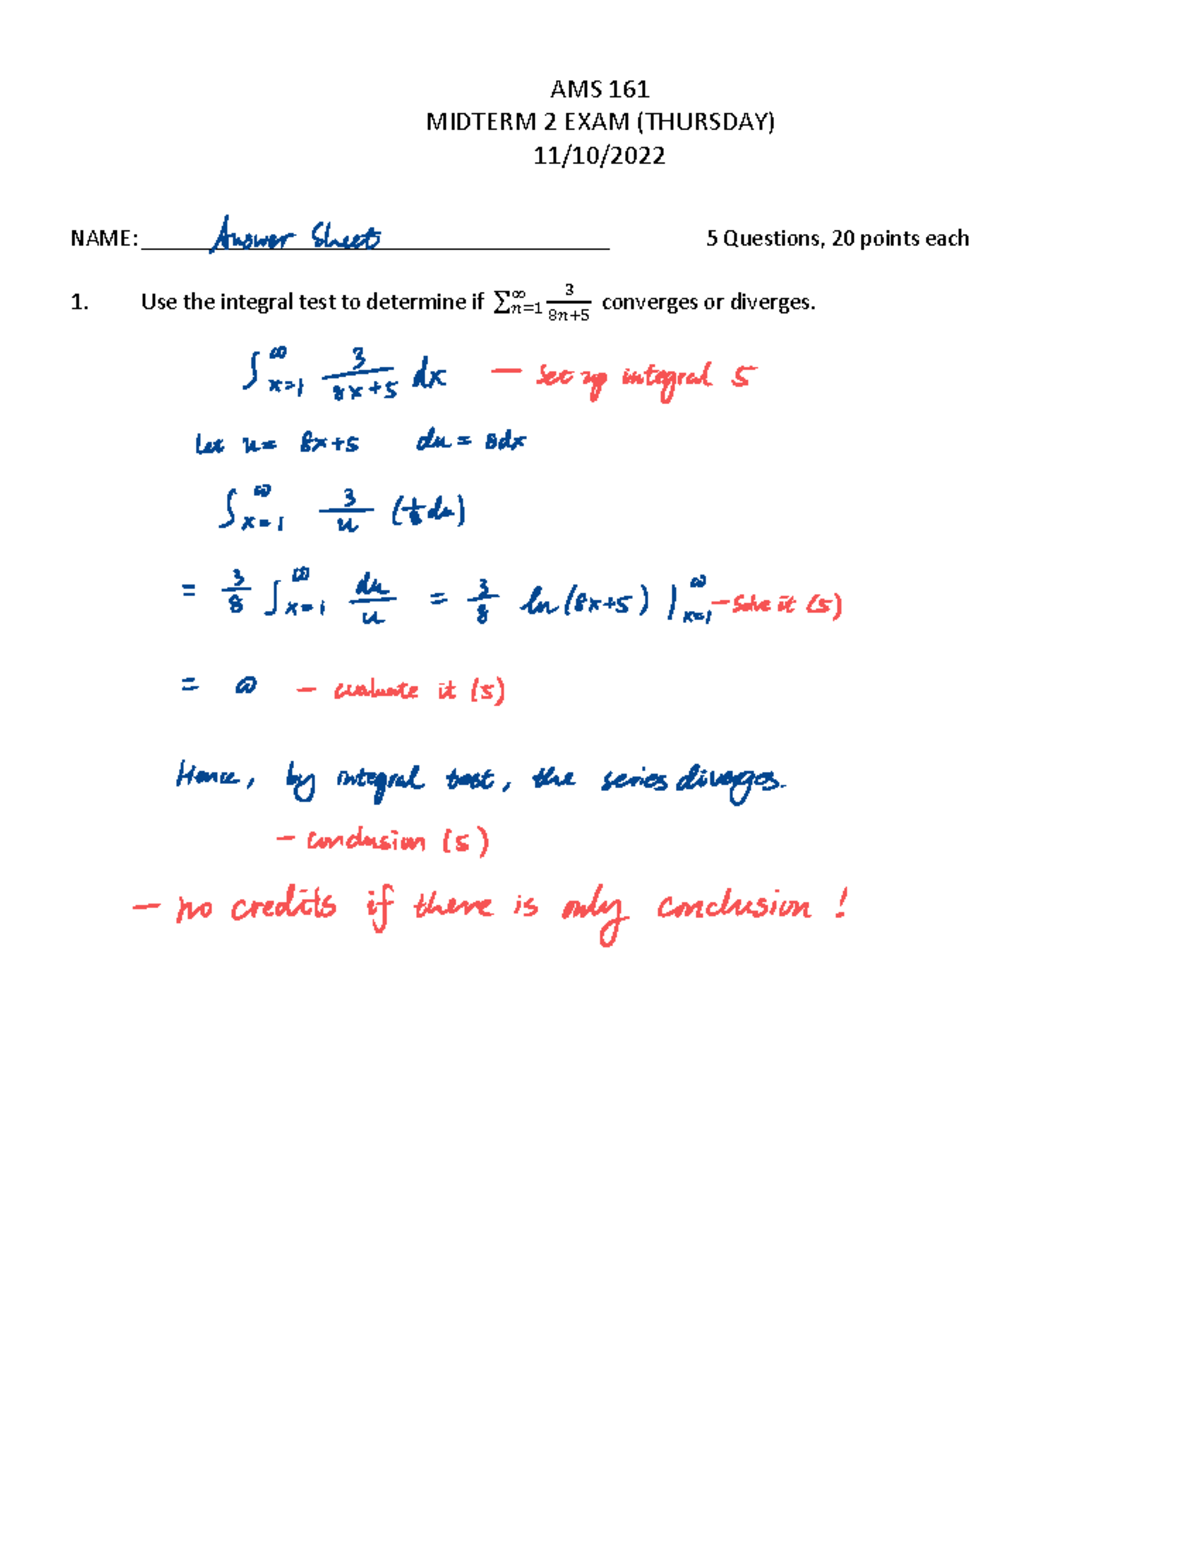 AMS 161
MIDTERM 2 EXAM (THURSDAY)
11/10/2022
NAME: Answer Sheet 5 Questions, 20 points each
1. Use the integral test to determine if ∑_{n=1}^{∞} 3/(8n+5) converges or diverges.
∫_{x=1}^{∞} 3/(8x+5) dx — Set up integral 5
Let u = 8x+5 du = 8dx
∫_{x=1}^{∞} 3/u (1/8 du)
= 3/8 ∫_{x=1}^{∞} du/u = 3/8 ln(8x+5) |_{x=1}^{∞} — Solve it (5)
= ∞ — evaluate it (5)
Hence, by integral test, the series diverges.
— conclusion (5)
— no credits if there is only conclusion !